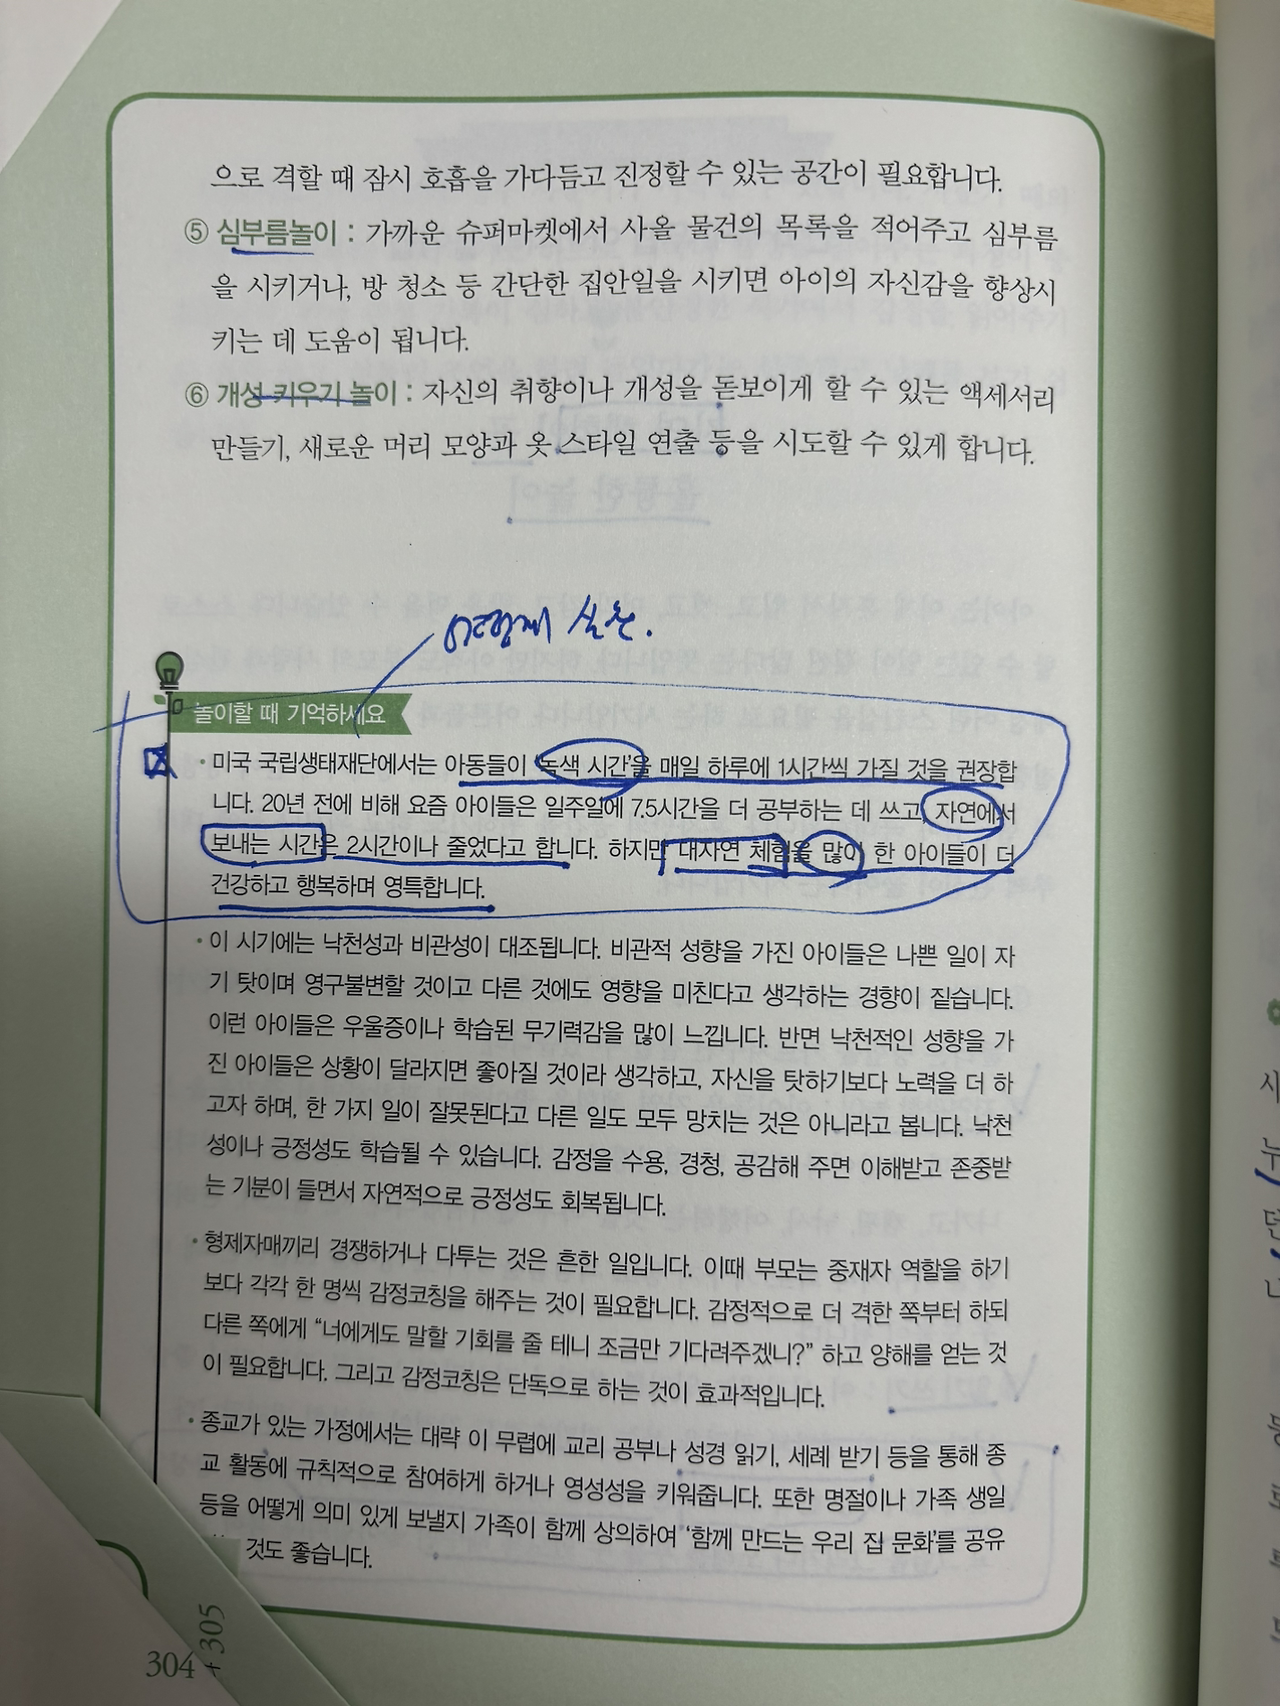 으로 격할 때 잠시 호흡을 가다듬고 진정할 수 있는 공간이 필요합니다.
⑤ 심부름놀이 : 가까운 슈퍼마켓에서 사올 물건의 목록을 적어주고 심부름
을 시키거나, 방 청소 등 간단한 집안일을 시키면 아이의 자신감을 향상시
키는 데 도움이 됩니다.
⑥ 개성 키우기 놀이 : 자신의 취향이나 개성을 돋보이게 할 수 있는 액세서리
만들기, 새로운 머리 모양과 옷 스타일 연출 등을 시도할 수 있게 합니다.
놀이할 때 기억하세요
• 미국 국립생태재단에서는 아동들이 '녹색 시간'을 매일 하루에 1시간씩 가질 것을 권장합
니다. 20년 전에 비해 요즘 아이들은 일주일에 7.5시간을 더 공부하는 데 쓰고, 자연에서
보내는 시간은 2시간이나 줄었다고 합니다. 하지만 대자연 체험을 많이 한 아이들이 더
건강하고 행복하며 영특합니다.
• 이 시기에는 낙천성과 비관성이 대조됩니다. 비관적 성향을 가진 아이들은 나쁜 일이 자
기 탓이며 영구불변할 것이고 다른 것에도 영향을 미친다고 생각하는 경향이 짙습니다.
이런 아이들은 우울증이나 학습된 무기력감을 많이 느낍니다. 반면 낙천적인 성향을 가
진 아이들은 상황이 달라지면 좋아질 것이라 생각하고, 자신을 탓하기보다 노력을 더 하
고자 하며, 한 가지 일이 잘못된다고 다른 일도 모두 망치는 것은 아니라고 봅니다. 낙천
성이나 긍정성도 학습될 수 있습니다. 감정을 수용, 경청, 공감해 주면 이해받고 존중받
는 기분이 들면서 자연적으로 긍정성도 회복됩니다.
• 형제자매끼리 경쟁하거나 다투는 것은 흔한 일입니다. 이때 부모는 중재자 역할을 하기
보다 각각 한 명씩 감정코칭을 해주는 것이 필요합니다. 감정적으로 더 격한 쪽부터 하되
다른 쪽에게 "너에게도 말할 기회를 줄 테니 조금만 기다려주겠니?" 하고 양해를 얻는 것
이 필요합니다. 그리고 감정코칭은 단독으로 하는 것이 효과적입니다.
• 종교가 있는 가정에서는 대략 이 무렵에 교리 공부나 성경 읽기, 세례 받기 등을 통해 종
교 활동에 규칙적으로 참여하게 하거나 영성성을 키워줍니다. 또한 명절이나 가족 생일
등을 어떻게 의미 있게 보낼지 가족이 함께 상의하여 '함께 만드는 우리 집 문화'를 공유
것도 좋습니다.
304 + 305